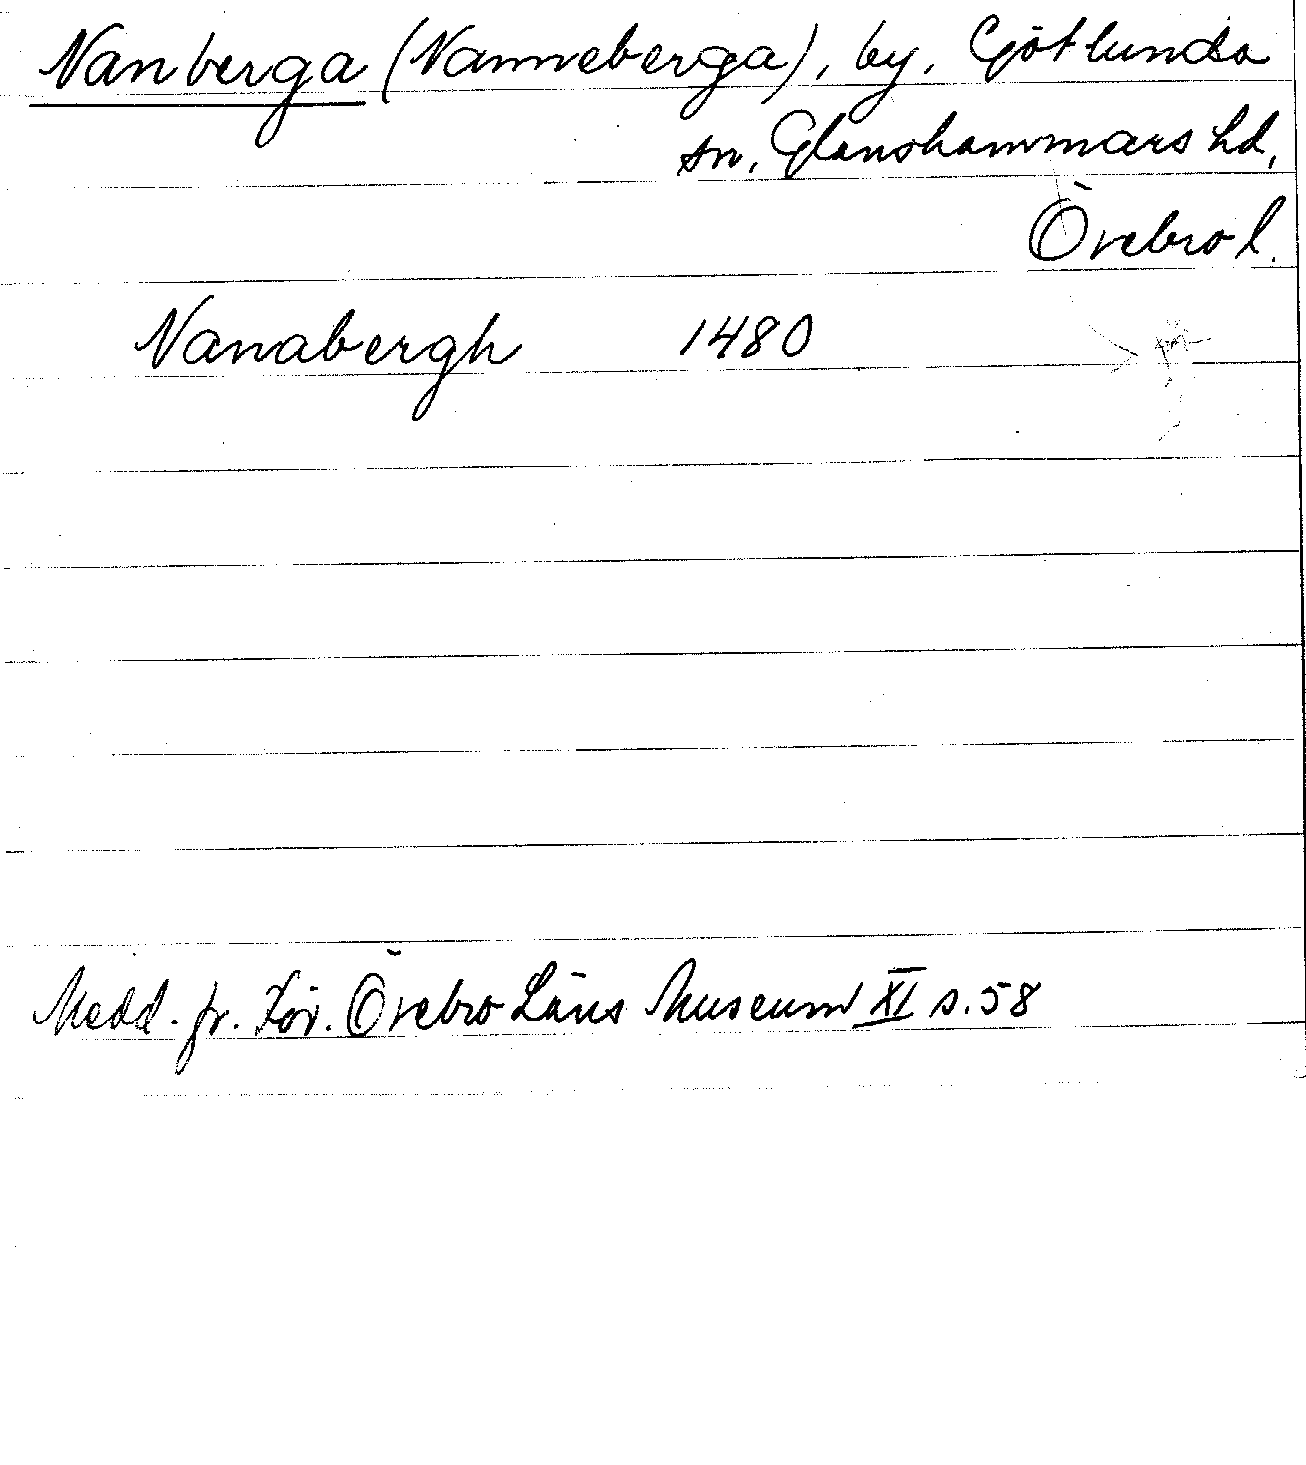 Nanberga (Nanneberga), by, Götlunda
sn, Glanshammars hd,
Örebro l.
Nanabergh 1480
Medd. fr. För. Örebro Läns Museum XI s. 58